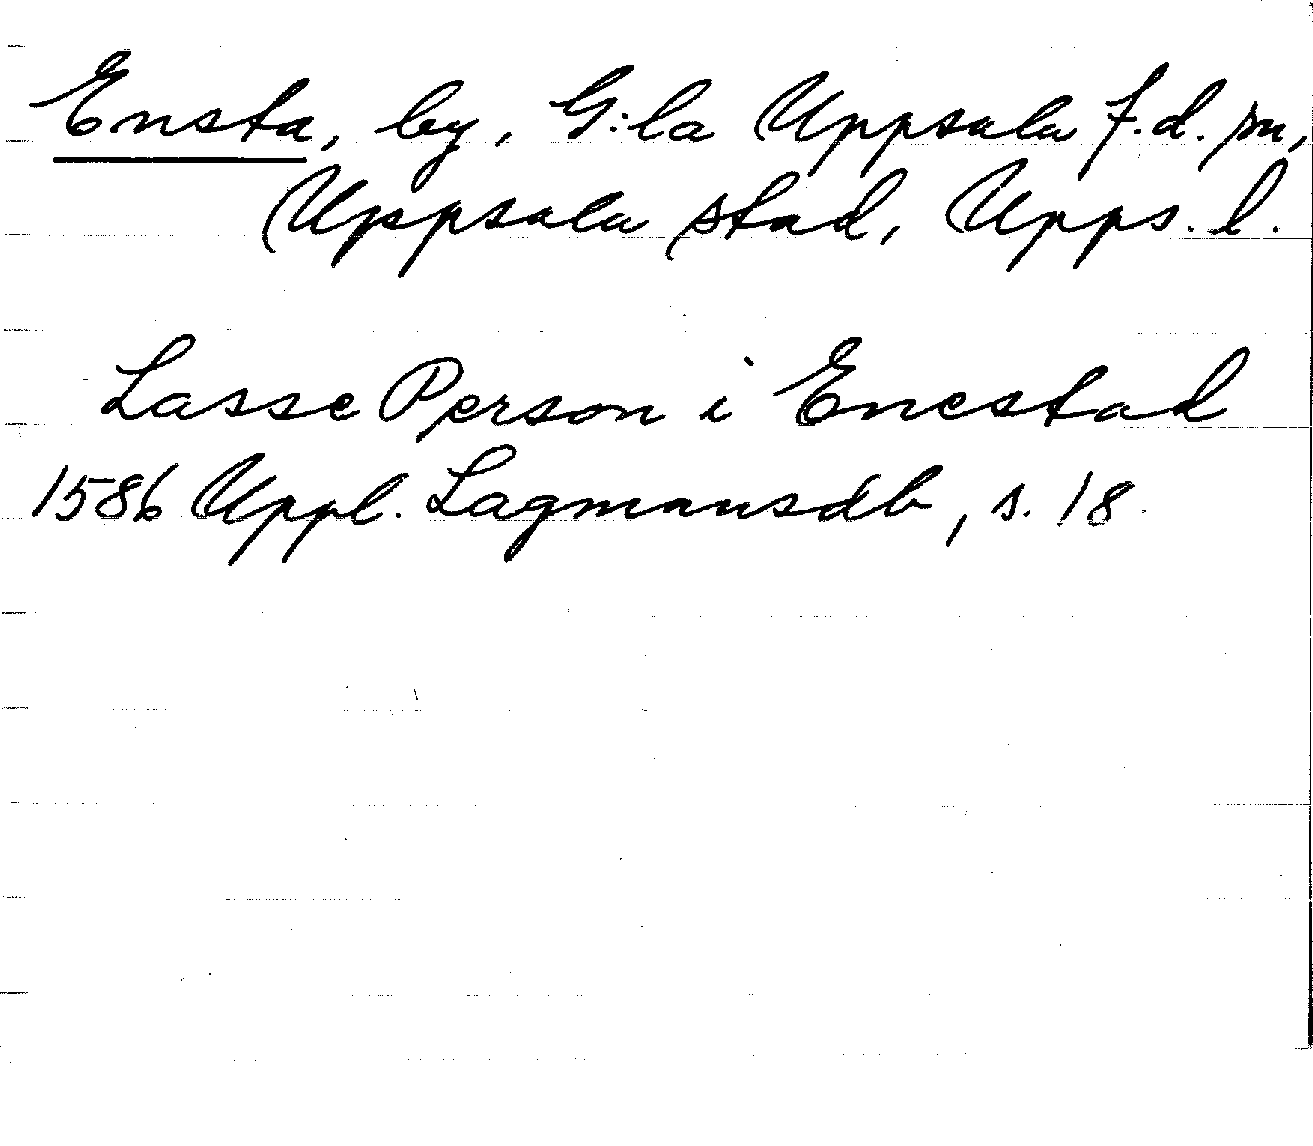 Ensta, by, G:la Uppsala f.d. sn,
Uppsala stad, Upps. l.
Lasse Person i Enestad
1586 Uppl. Lagmansdb, s. 18